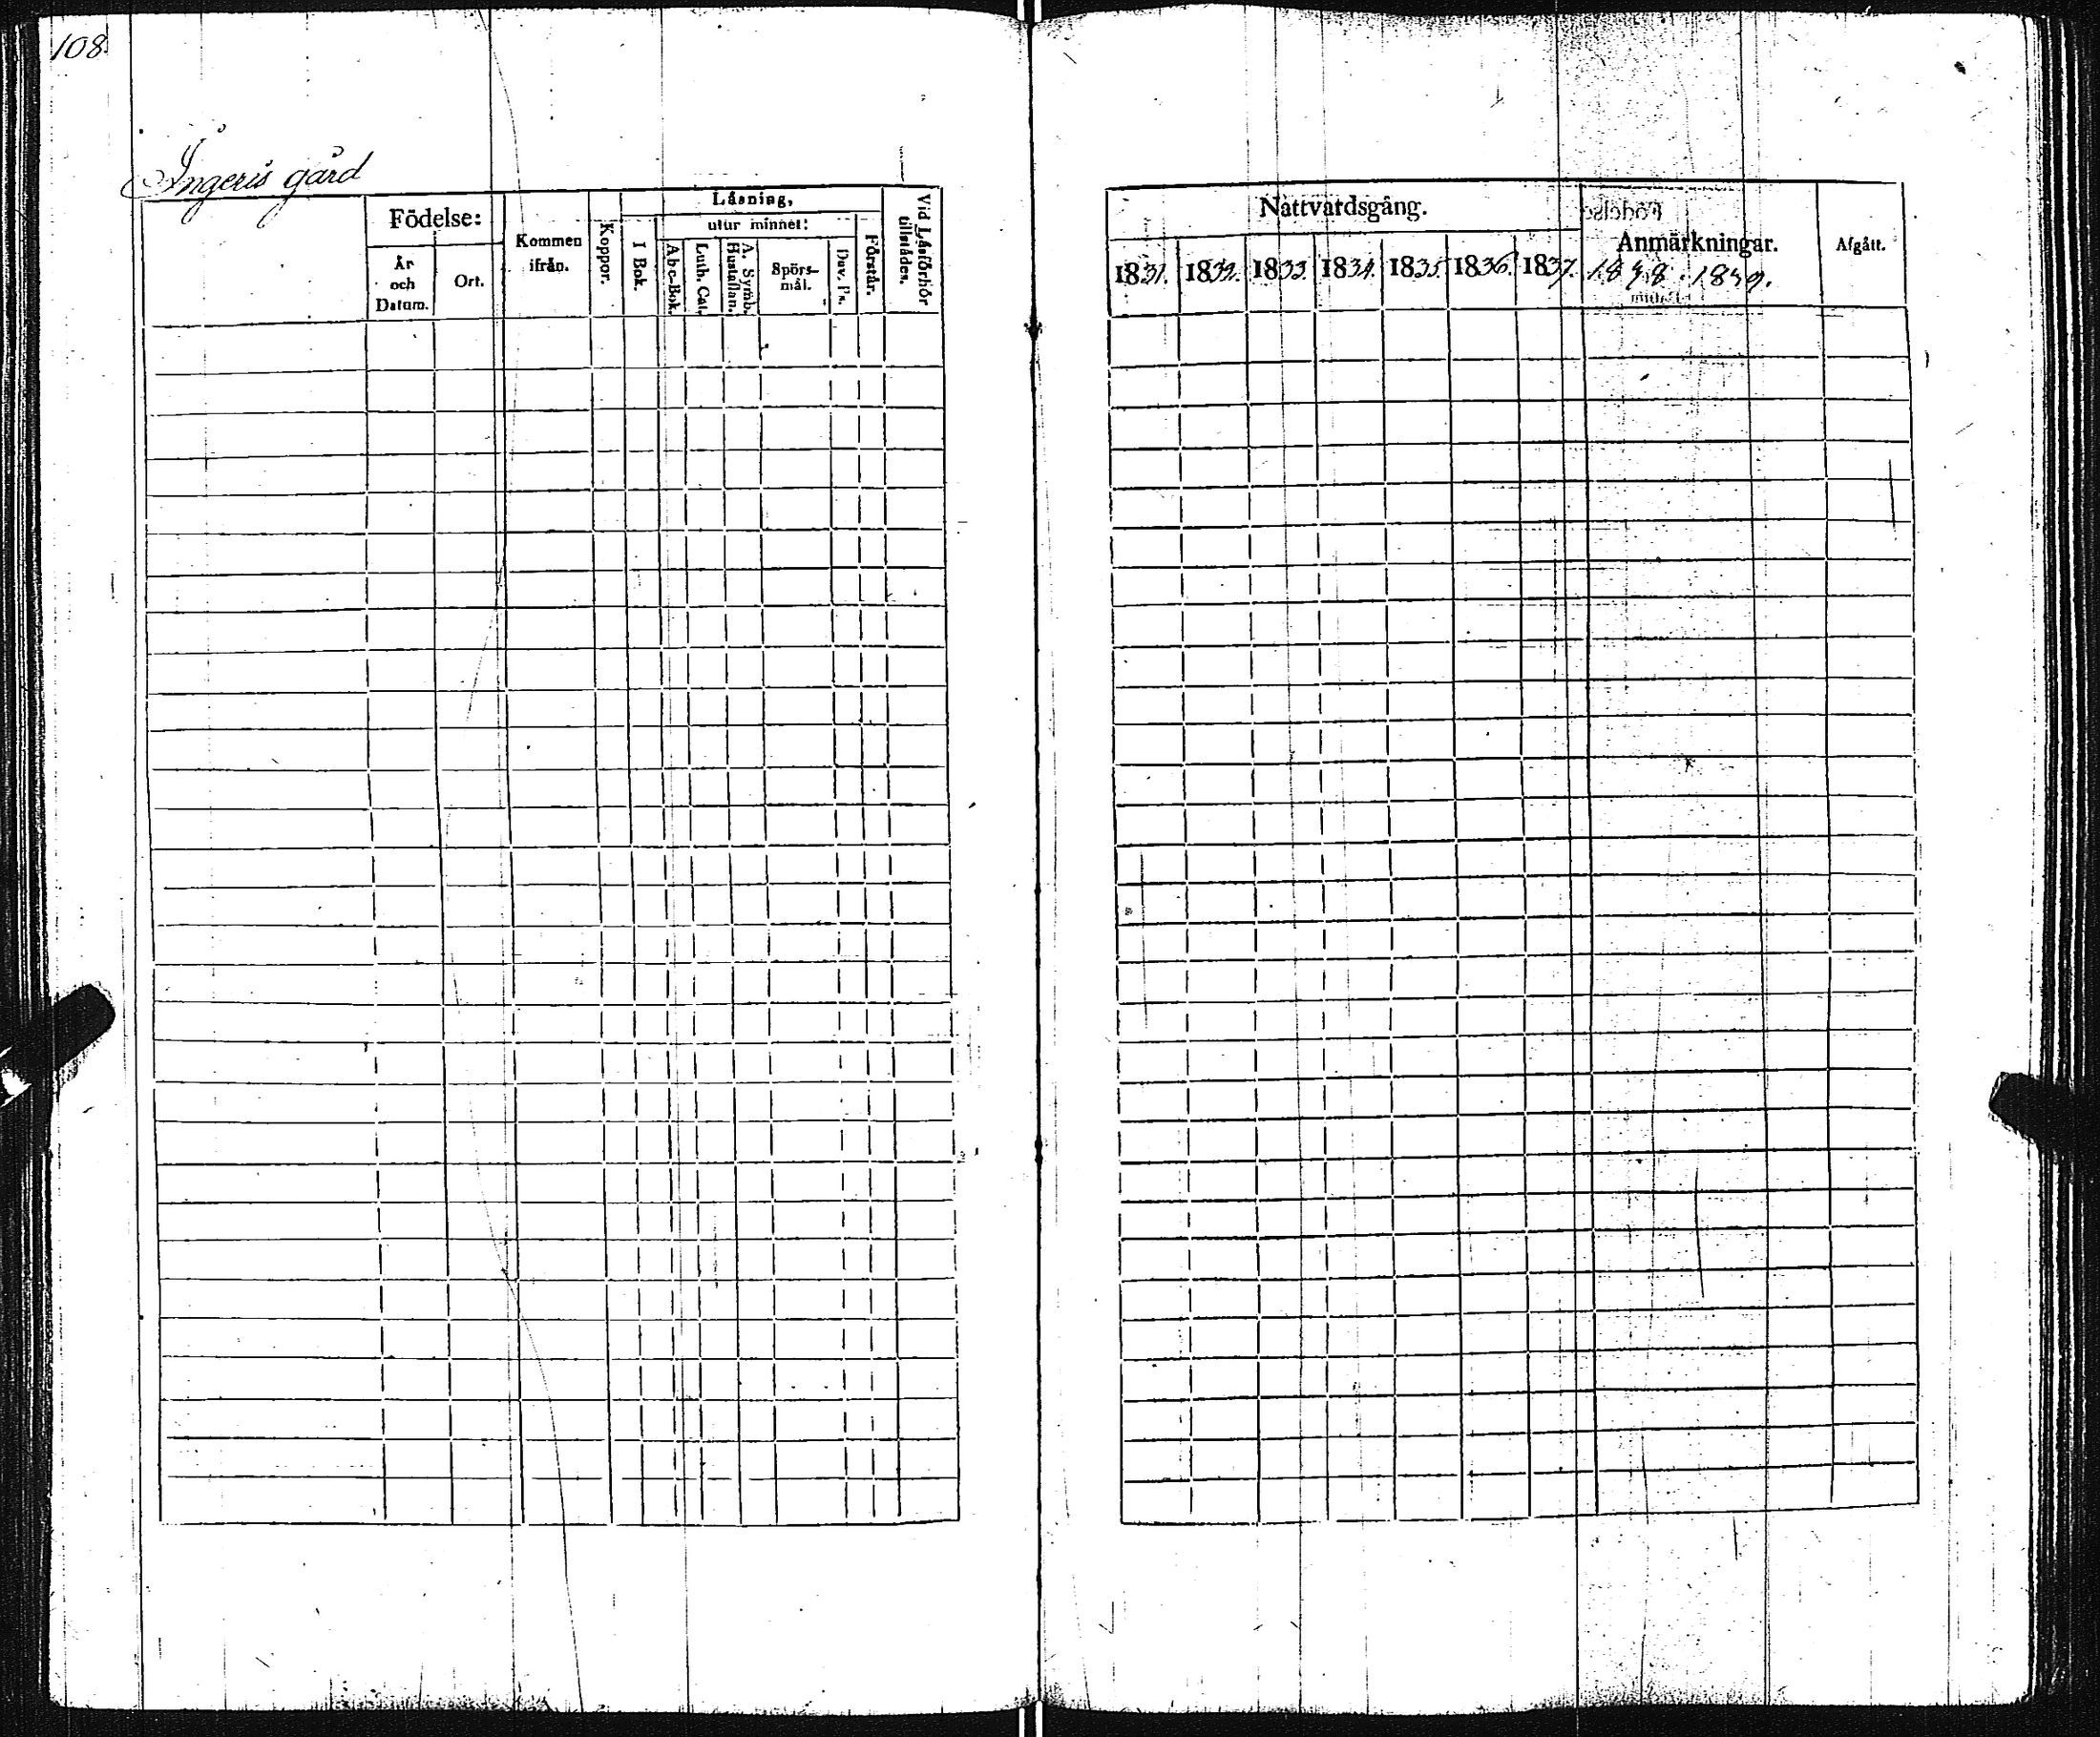 108
Ingeris gård
Födelse:
År och Datum.
Ort.
Kommen ifrån.
Koppor.
Läsning,
I Bok.
utur minnet:
Abc-Bok.
Luth. Cat.
A. Symb. Hustaflan.
Spörs-mål.
Dav. Ps.
Förstår.
Vid Läsförhör tillstådes.
Nattvardsgång.
1831. 1832. 1833. 1834. 1835. 1836. 1837. 1838. 1839.
Anmärkningar.
Afgått.